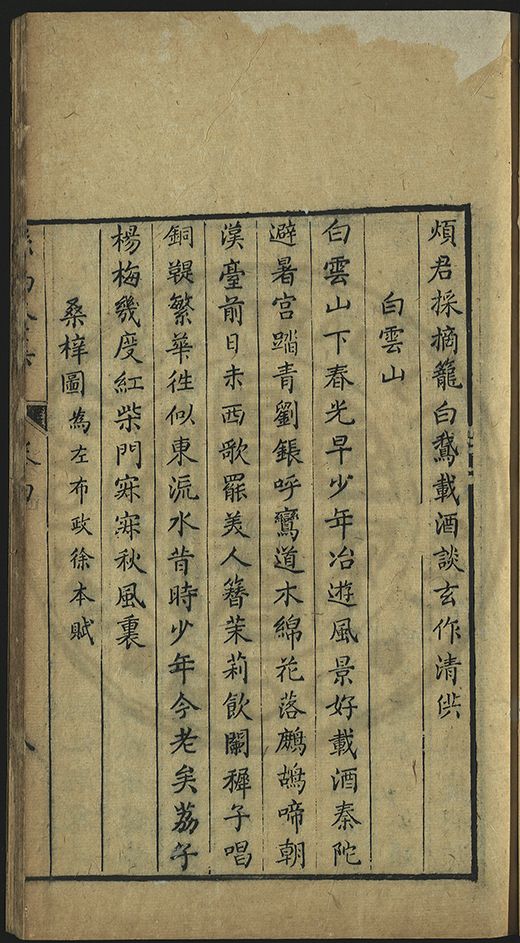 煩君採摘籠白鵞載酒談玄作清供
白雲山
白雲山下春光早少年冶遊風景好載酒秦陀
避暑宫踏青劉鋹呼鸞道木綿花落鷓鴣啼朝
漢臺前日未西歌罷美人簪茉莉飲闌穉子唱
銅鞮繁華徃似東流水昔時少年今老矣荔子
楊梅幾度紅柴門寂寂秋風裏
桑梓圖為左布政徐本賦